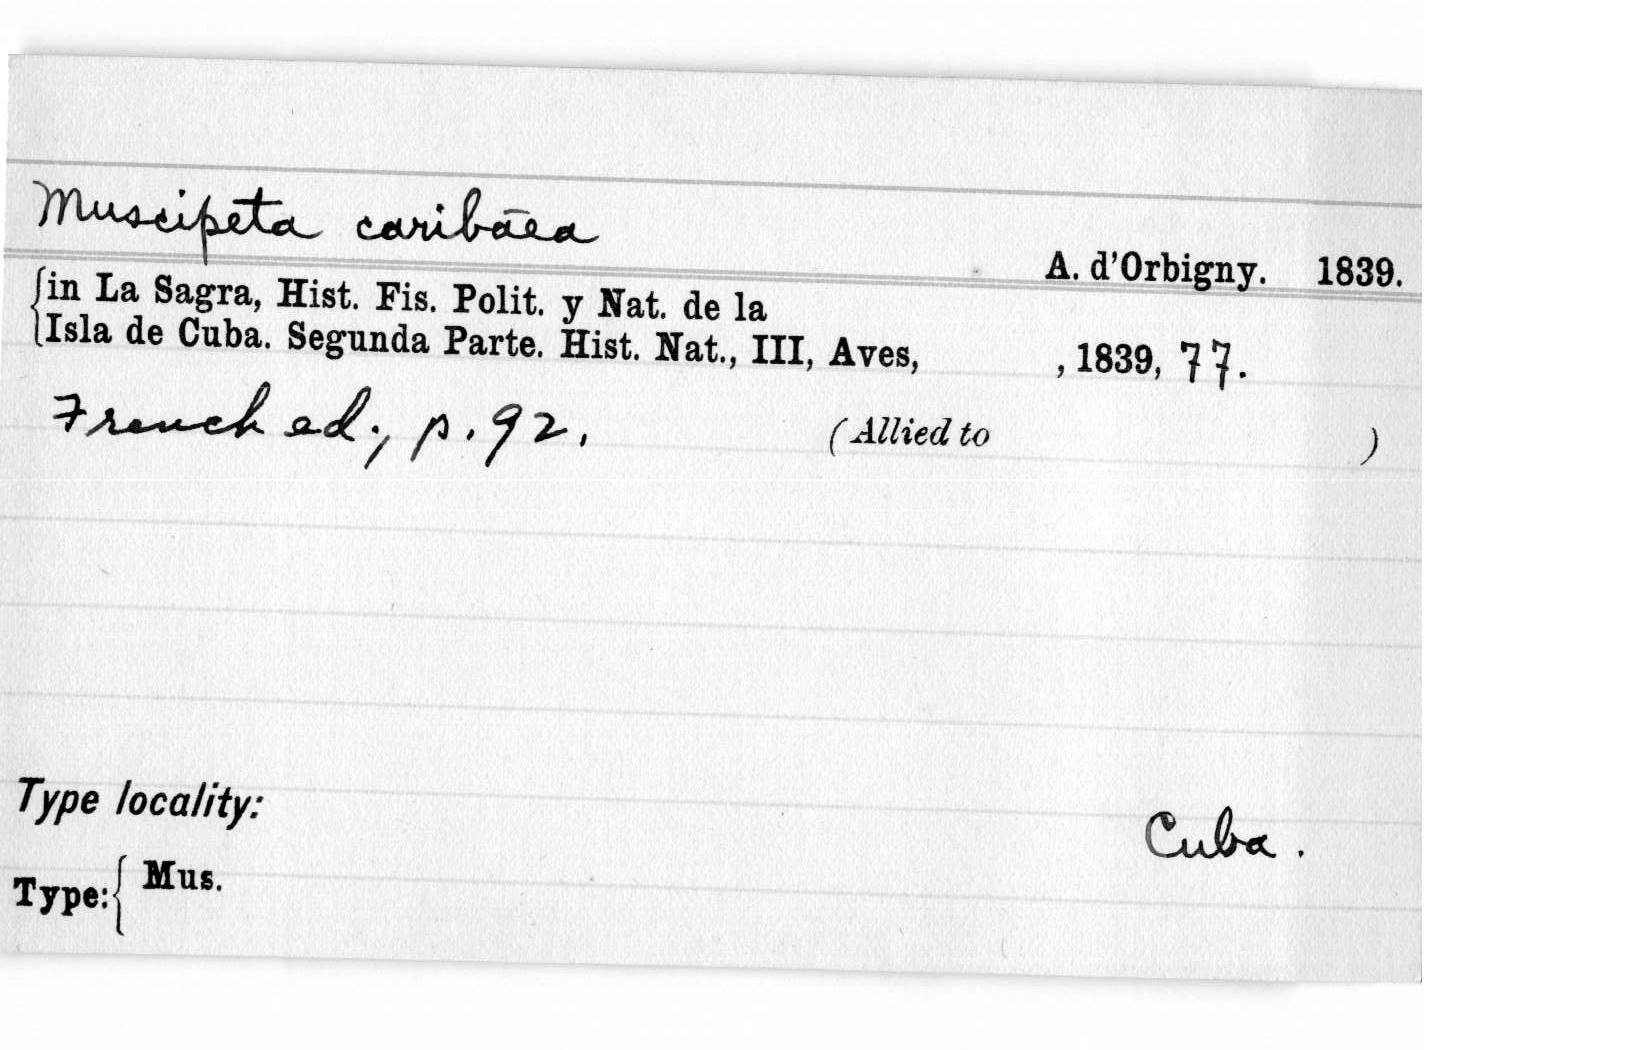 Muscipeta caribāea
A. d'Orbigny. 1839.
in La Sagra, Hist. Fis. Polit. y Nat. de la
Isla de Cuba. Segunda Parte. Hist. Nat., III, Aves, , 1839, 77.
French ed., p. 92. (Allied to )
Type locality: Cuba.
Type: Mus.